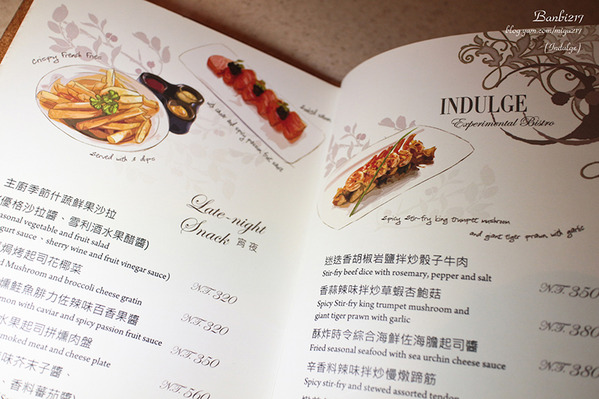 Banbi217
blog.yam.com/miga217
(Indulge)
Crispy French Fries
Served with 2 dips
Late-night
Snack 宵夜
主廚季節什蔬鮮果沙拉
優格沙拉醬、雪利酒水果醋醬)
seasonal vegetable and fruit salad
gurt sauce、sherry wine and fruit vinegar sauce)
焗烤起司花椰菜
Mushroom and broccoli cheese gratin
NT. 320
燻鮭魚腓力佐辣味百香果醬
mon with caviar and spicy passion fruit sauce
NT. 320
水果起司拼燻肉盤
smoked meat and cheese plate
NT. 350
味芥末子醬
NT. 560
、香料蕃茄醬)
INDULGE
Experimental Bistro
Spicy stir-fry king trumpet mushroom
and giant tiger prawn with garlic
迷迭香胡椒岩鹽拌炒骰子牛肉
Stir-fry beef dice with rosemary, pepper and salt
NT. 350
香蒜辣味拌炒草蝦杏鮑菇
Spicy Stir-fry king trumpet mushroom and
giant tiger prawn with garlic
NT. 380
酥炸時令綜合海鮮佐海膽起司醬
Fried seasonal seafood with sea urchin cheese sauce
NT. 380
辛香料辣味拌炒慢燉蹄筋
Spicy stir-fry and stewed assorted tendon